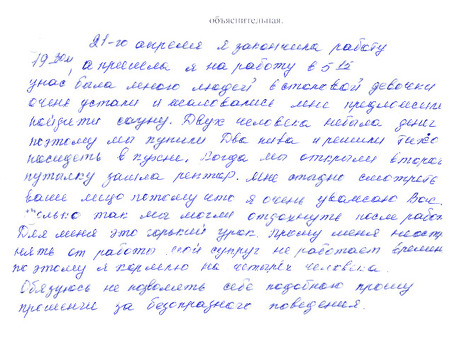 объяснительная.
21-го апреля я закончила работу
19 30м, а пришла я на работу в 5 12
унас было много людей в столовой девочки
очень устали и жаловались мне предложили
пойдити сауну. Двух человека небыла денег
поэтому мы купили Два пива и решили Тихо
посидеть в кухне. Когда мы открыли вторую
путылку зашла ректор. Мне стыдно смотреть
ваше лицо потому что я очень уважаю Вас.
только так мы могли отдохнуть после работ
Для меня это горький урок. Прошу меня неотст
нять от работы. Мой супруг не работает времен
поэтому я кормлю на четырёх человека.
Обязуюсь не позволять себе подобную прошу
прошения за безобразного поведения.